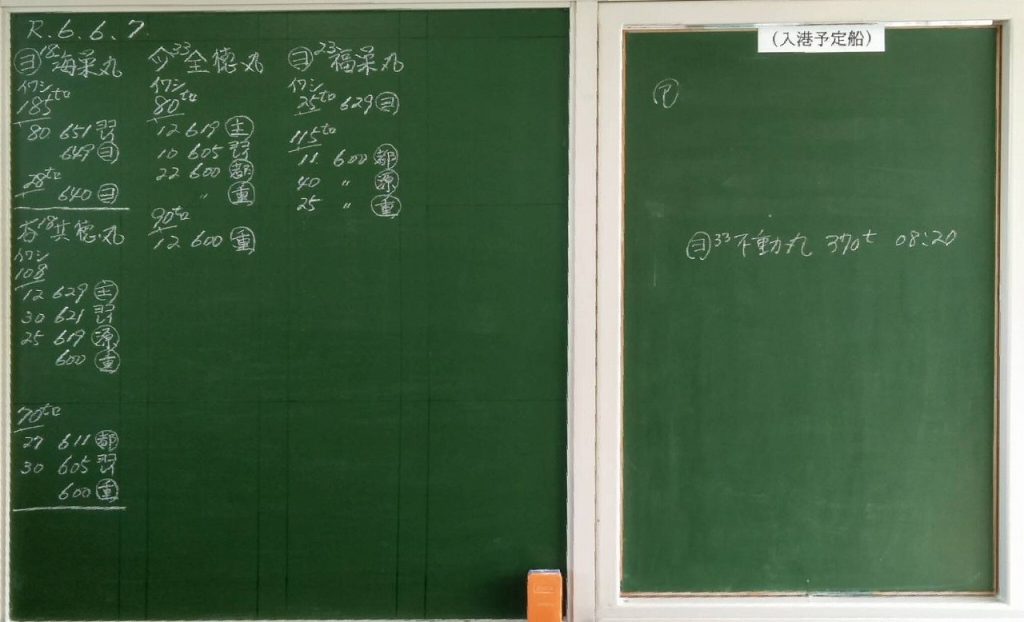 R.6.6.7
ヨ 18 海栄丸
イワシ
185to
80 651 習
649 ヨ
28to
640 ヨ
18 共徳丸
イワシ
108
12 629 主
30 621 習
25 619 源
600 重
70to
27 611 都
30 605 習
600 重
33 全徳丸
イワシ
80to
12 619 主
10 605 習
22 600 都
〃 重
90to
12 600 重
ヨ 23 福栄丸
イワシ
25to 629 ヨ
115to
11 600 都
40 〃 源
25 〃 重
(入港予定船)
ヨ 33 不動丸 370t 08:20